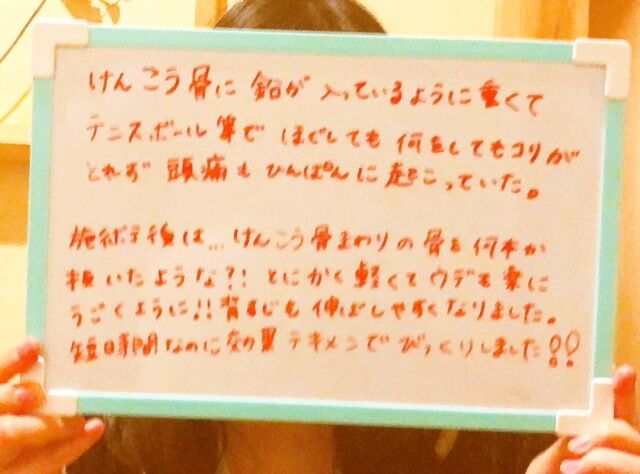 けんこう骨に鉛が入っているように重くて
テニスボール等でほぐしても何をしてもコリが
とれず頭痛もひんぱんに起こっていた。
施術後は…けんこう骨まわりの骨を何本か
抜いたような?!とにかく軽くてウデも楽に
うごくように!!背すじも伸ばしやすくなりました。
短時間なのに効果テキメンでびっくりしました!!